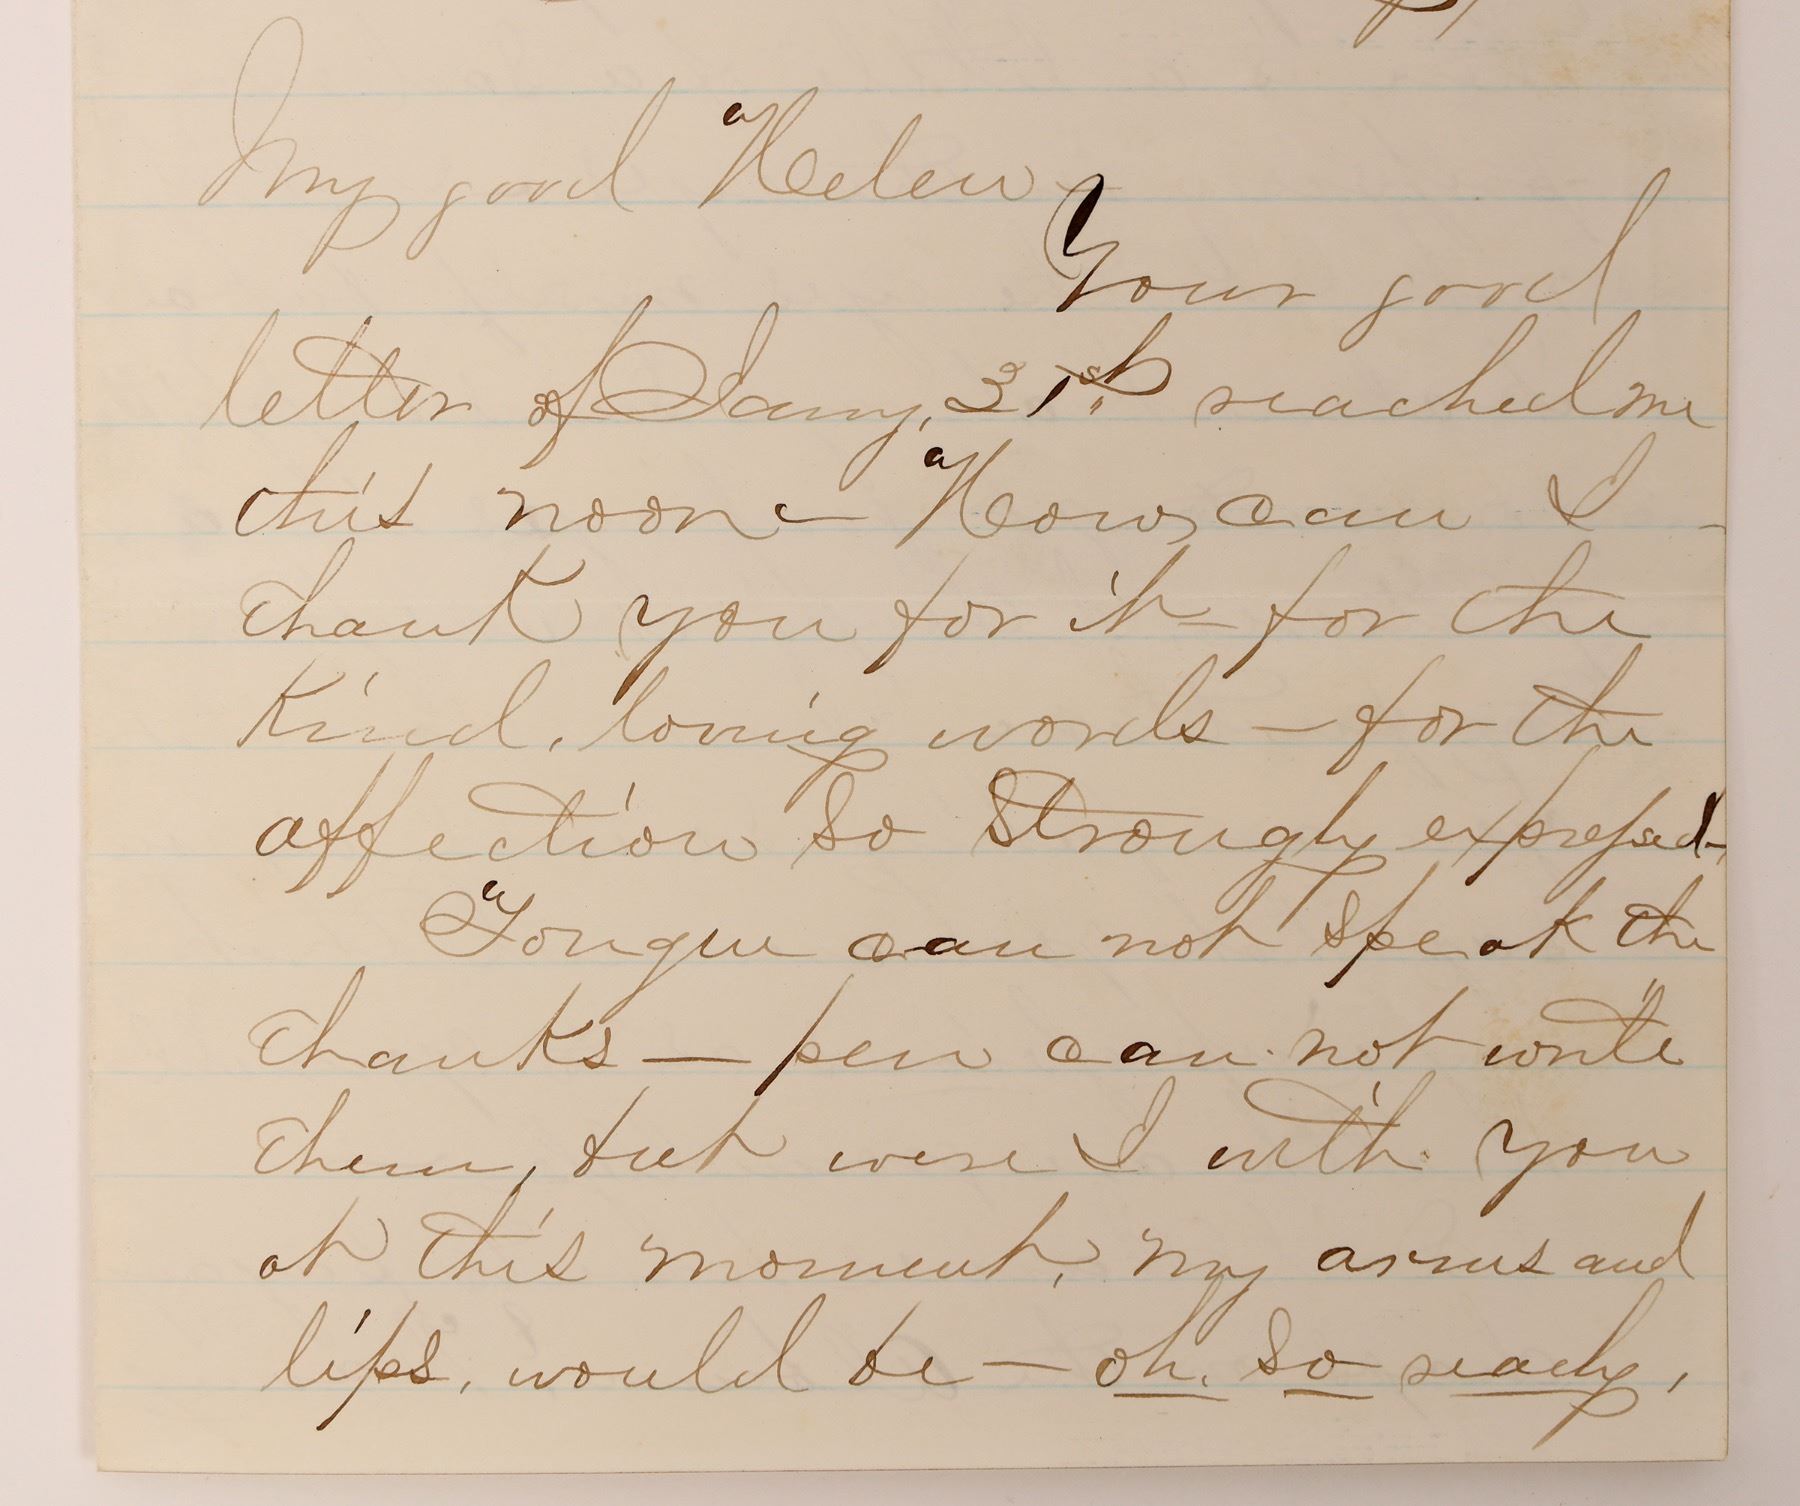 My good Helen
Your good
letter of Jany, 31st reached me
this noon — How can I
thank you for it — for the
kind, loving words — for the
affection so strongly expressed —
Tongue can not speak the
thanks — pen can not write
them, but were I with you
at this moment, my arms and
lips, would be — oh, so ready,